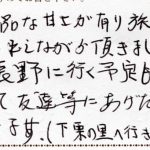 品な甘土が有り旅
わしながら頂きまし
長野に行く予定
て友達等にあげた
ます.(下栗の里へ行き